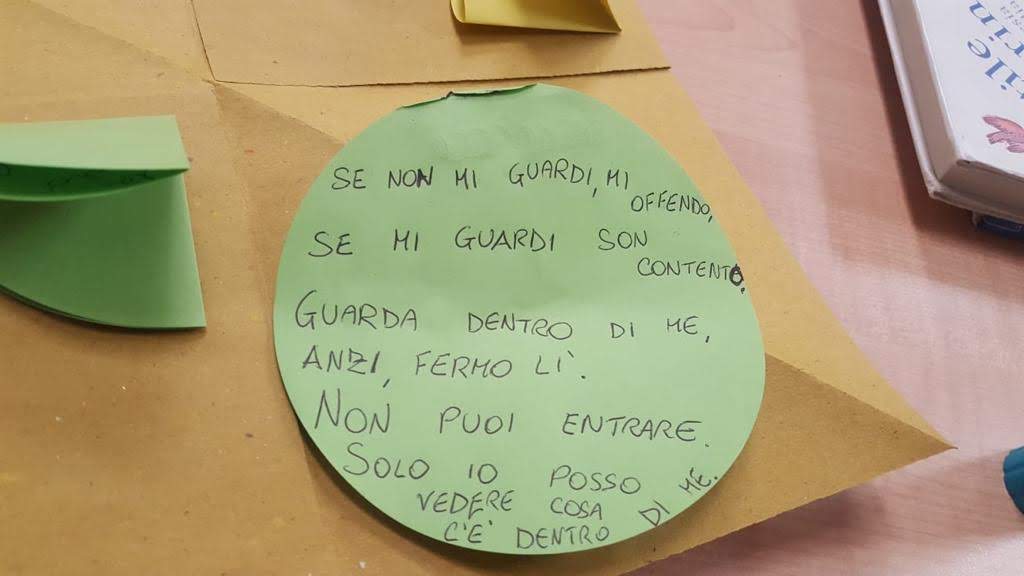 SE NON MI GUARDI, MI
OFFENDO,
SE MI GUARDI SON
CONTENTO.
GUARDA DENTRO DI ME,
ANZI, FERMO LÌ.
NON PUOI ENTRARE.
SOLO IO POSSO
VEDERE COSA
C'È DENTRO DI ME.